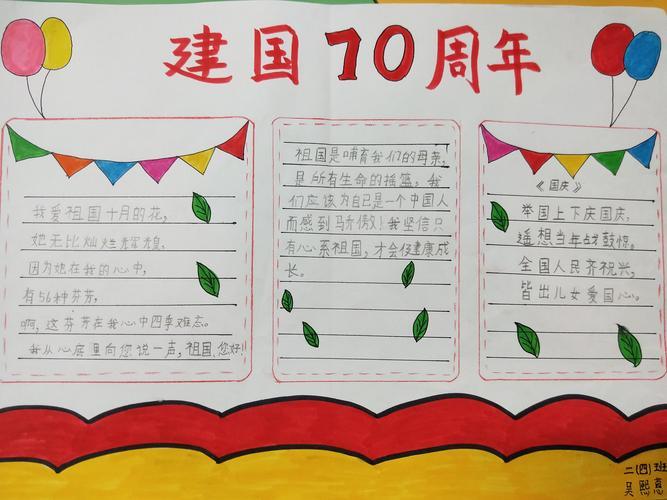 建国70周年
我爱祖国十月的花，
她无比灿烂辉煌，
因为她在我的心中，
有56种芬芳，
啊，这芬芳在我心中四季难忘。
我从心底里向您说一声，祖国，您好！
祖国是哺育我们的母亲。
是所有生命的摇篮，我
们应该为自已是一个中国人
而感到骄傲！我坚信只
有心系祖国，才会健康成
长。
《国庆》
举国上下庆国庆，
遥想当年战鼓惊。
全国人民齐祝兴，
皆出儿女爱国心。
二（四）班
吴熙